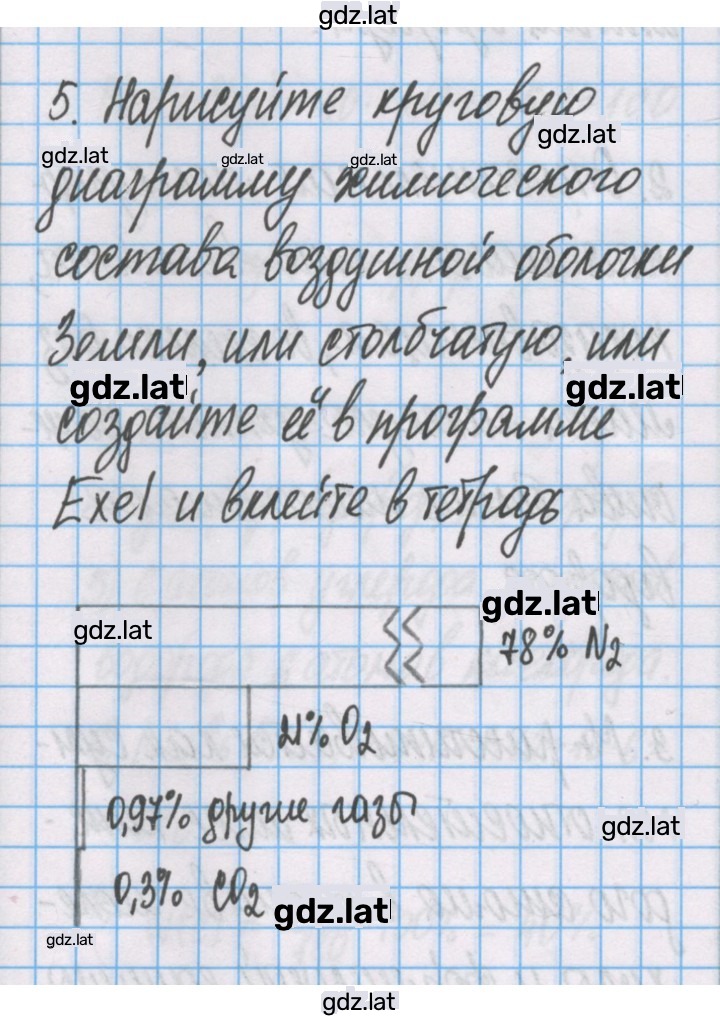 gdz.lat
5. Нарисуйте круговую
gdz.lat
gdz.lat gdz.lat gdz.lat
диаграмму химического
состава воздушной оболочки
Земли, или столбчатую, или
gdz.lat gdz.lat
создайте её в программе
Exel и вклейте в тетрадь
gdz.lat
gdz.lat
78% N2
21% O2
0,97% другие газы
gdz.lat
0,3% CO2
gdz.lat
gdz.lat
gdz.lat